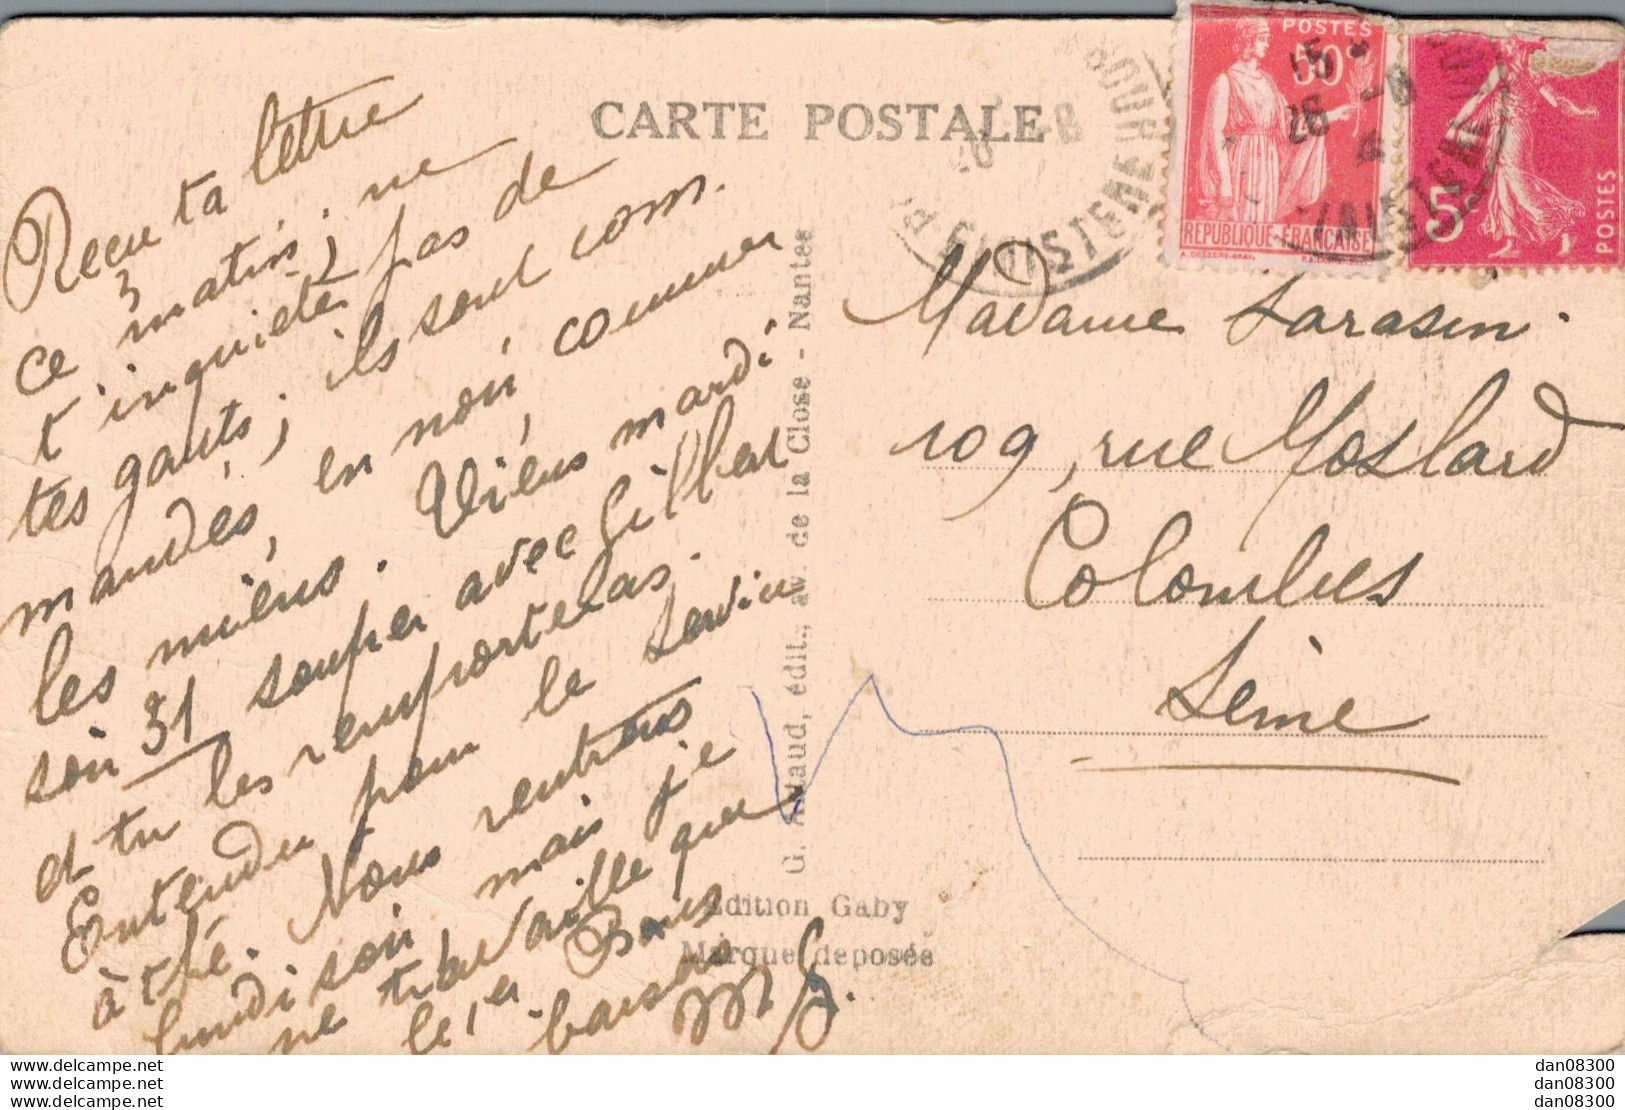 CARTE POSTALE
Recu ta lettre
ce matin ; ne
t'inquiète pas de
tes gants ; ils sont com.
mandés, en noir, comme
les miens. Viens mardi
soir 31 souper avec Gilbert
et tu les remporteras.
Entendu pour le service
à thé. Nous rentrons
lundi soir mais je
ne travaille que
le 1er Bons
baisers
G. Artaud, édit., av. de la Close - Nantes
Edition Gaby
Marque deposée
POSTES
50c
REPUBLIQUE FRANCAISE
5c
POSTES
FINISTERE
Madame Sarasin.
109, rue Moslard
Colombes
Seine
www.delcampe.net
www.delcampe.net
www.delcampe.net
dan08300
dan08300
dan08300